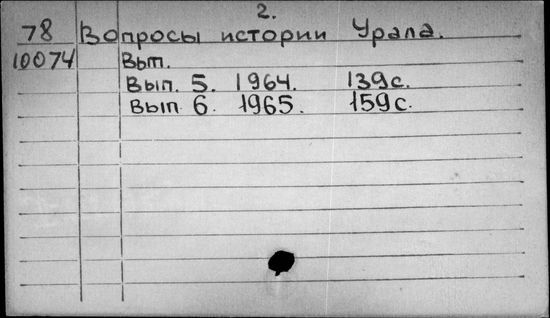 2.
78 Вопросы истории Урала.
10074 Вып.
Вып. 5. 1964. 139с.
Вып 6. 1965. 159с.